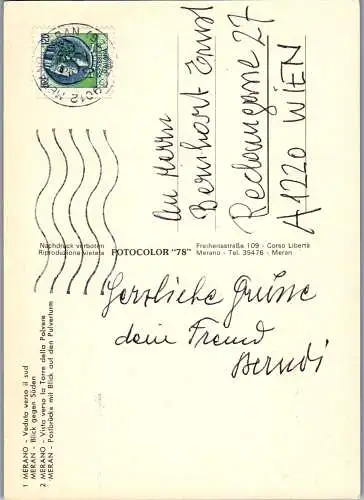 An Herrn
Bernhart Ernst
Rechengasse 27
A1220 WIEN
Nachdruck verboten
Riproduzione vietata
FOTOCOLOR "78"
Freiheitsstraße 109 - Corso Libertà
Merano - Tel. 35476 - Meran
Herzliche Grüsse
dein Freund
Berndi
1 MERANO - Veduta verso il sud
MERAN - Blick gegen Süden
2 MERANO - Vista verso la Torre della Polvere
MERAN - Postbrücke mit Blick auf den Pulverturm